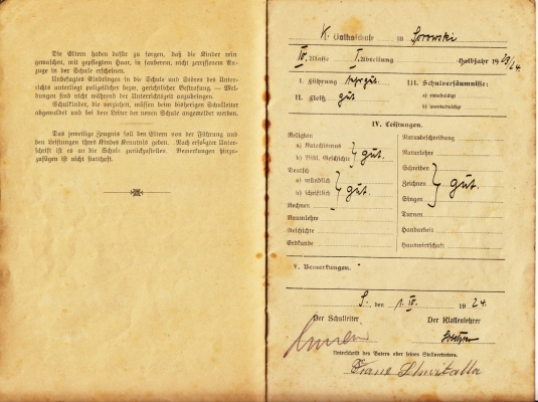 Die Eltern haben dafür zu sorgen, daß die Kinder rein
gewaschen, mit gepflegtem Haar, in sauberen, nicht zerrissenen An-
zuge in der Schule erscheinen.
Unbefugtes Eindringen in die Schule und Stören des Unter-
richts unterliegt polizeilicher bezw. gerichtlicher Bestrafung. — Mel-
dungen sind nicht während der Unterrichtszeit anzubringen.
Schulkinder, die verziehen, müssen beim bisherigen Schulleiter
abgemeldet und bei dem Leiter der neuen Schule angemeldet werden.
Das jeweilige Zeugnis soll den Eltern von der Führung und
den Leistungen ihres Kindes Kenntnis geben. Nach erfolgter Unter-
schrift ist es an die Schule zurückzustellen. Bemerkungen hinzu-
zufügen ist nicht statthaft.
K. Volksschule in Sorowski
IV. Klasse I. Abteilung Halbjahr 1923/24
I. Führung sehr gut III. Schulversäumnisse:
II. Fleiß gut a) entschuldigt
b) unentschuldigt
IV. Leistungen.
Religion
a) Katechismus
b) Bibl. Geschichte gut.
Deutsch
a) mündlich
b) schriftlich gut.
Rechnen
Raumlehre
Geschichte
Erdkunde
Naturbeschreibung
Naturlehre
Schreiben
Zeichnen gut.
Singen
Turnen
Handarbeit
Hauswirtschaft
V. Bemerkungen.
S., den 1. IV. 1924.
Der Schulleiter Der Klassenlehrer
Unterschrift des Vaters oder seines Stellvertreters.